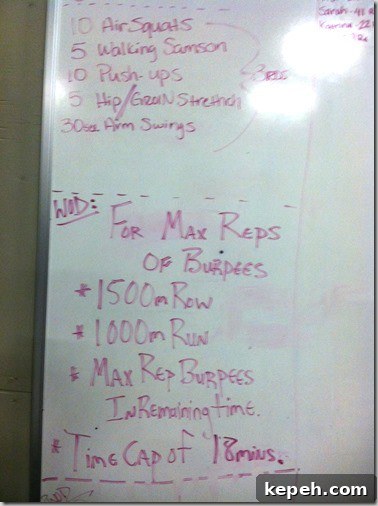 10 Air Squats
5 Walking Samson
10 Push-ups
5 Hip/Groin Stretch
30sec Arm Swings
Sarah - 41
WOD:
For Max Reps
Of Burpees
* 1500m Row
* 1000m Run
* Max Rep Burpees
In Remaining time.
* Time Cap of 18mins.
kepeh.com